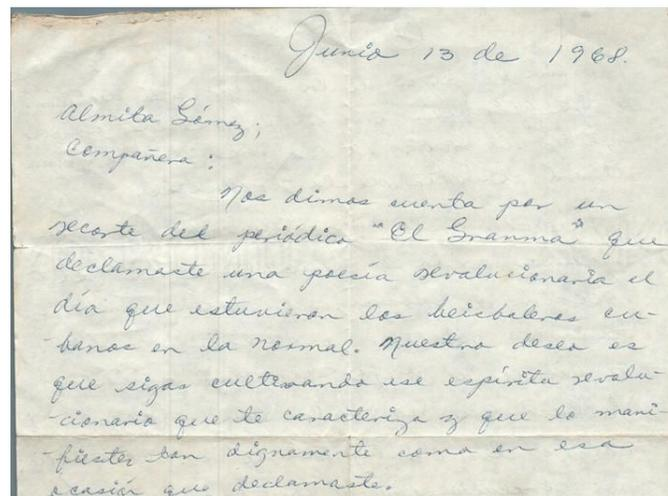 Junio 13 de 1968.
Almita Gómez;
Compañera:
Nos dimos cuenta por un
recorte del periódico "El Granma" que
declamaste una poesía revolucionaria el
día que estuvieron los beisboleros cu-
banos en la normal. Nuestro deseo es
que sigas cultivando ese espíritu revolu-
-cionario que te caracteriza y que lo mani
fiestes tan dignamente como en esa
ocasión que declamaste.